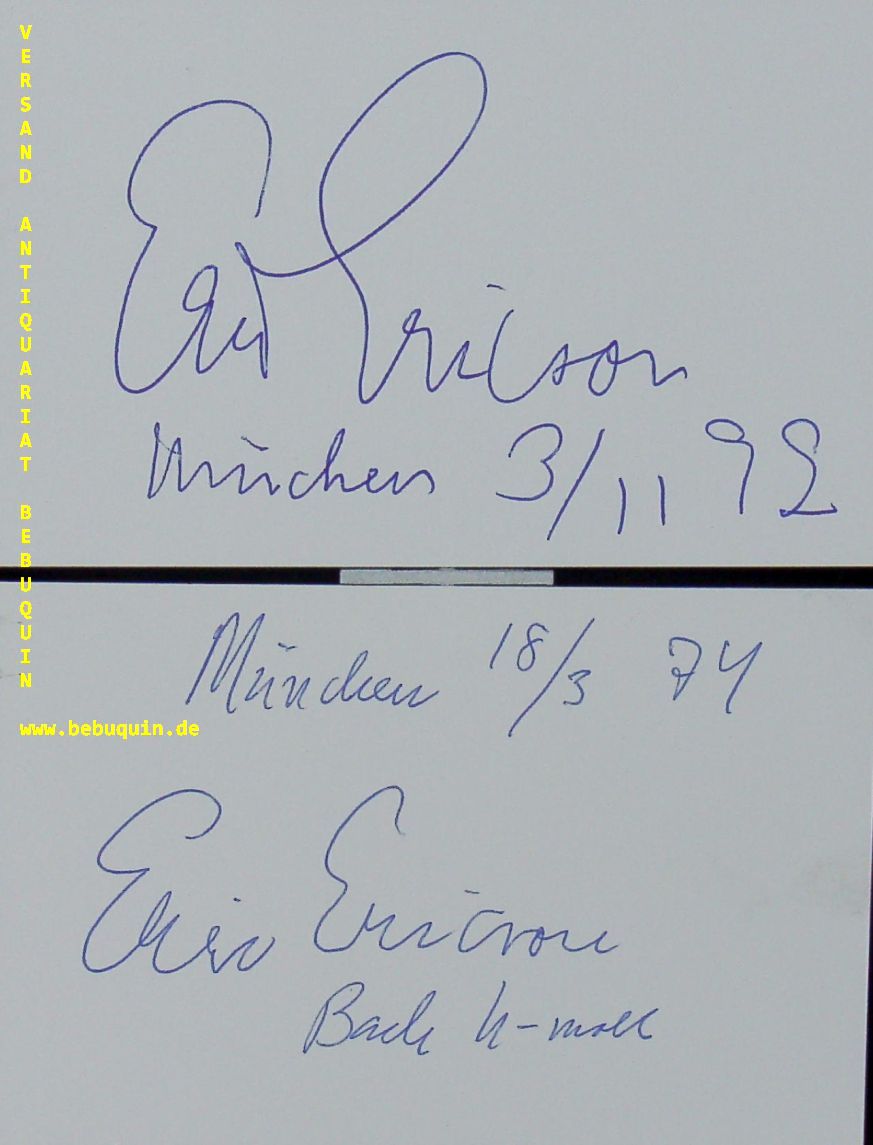 VERSAND ANTIQUARIAT BEBUQUIN
www.bebuquin.de
Eric Ericson
München 3/11 92
München 18/3 74
Eric Ericson
Bach h-moll